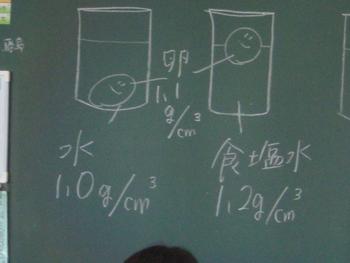 卵
1.1
g/cm³
水
1.0g/cm³
食塩水
1.2g/cm³